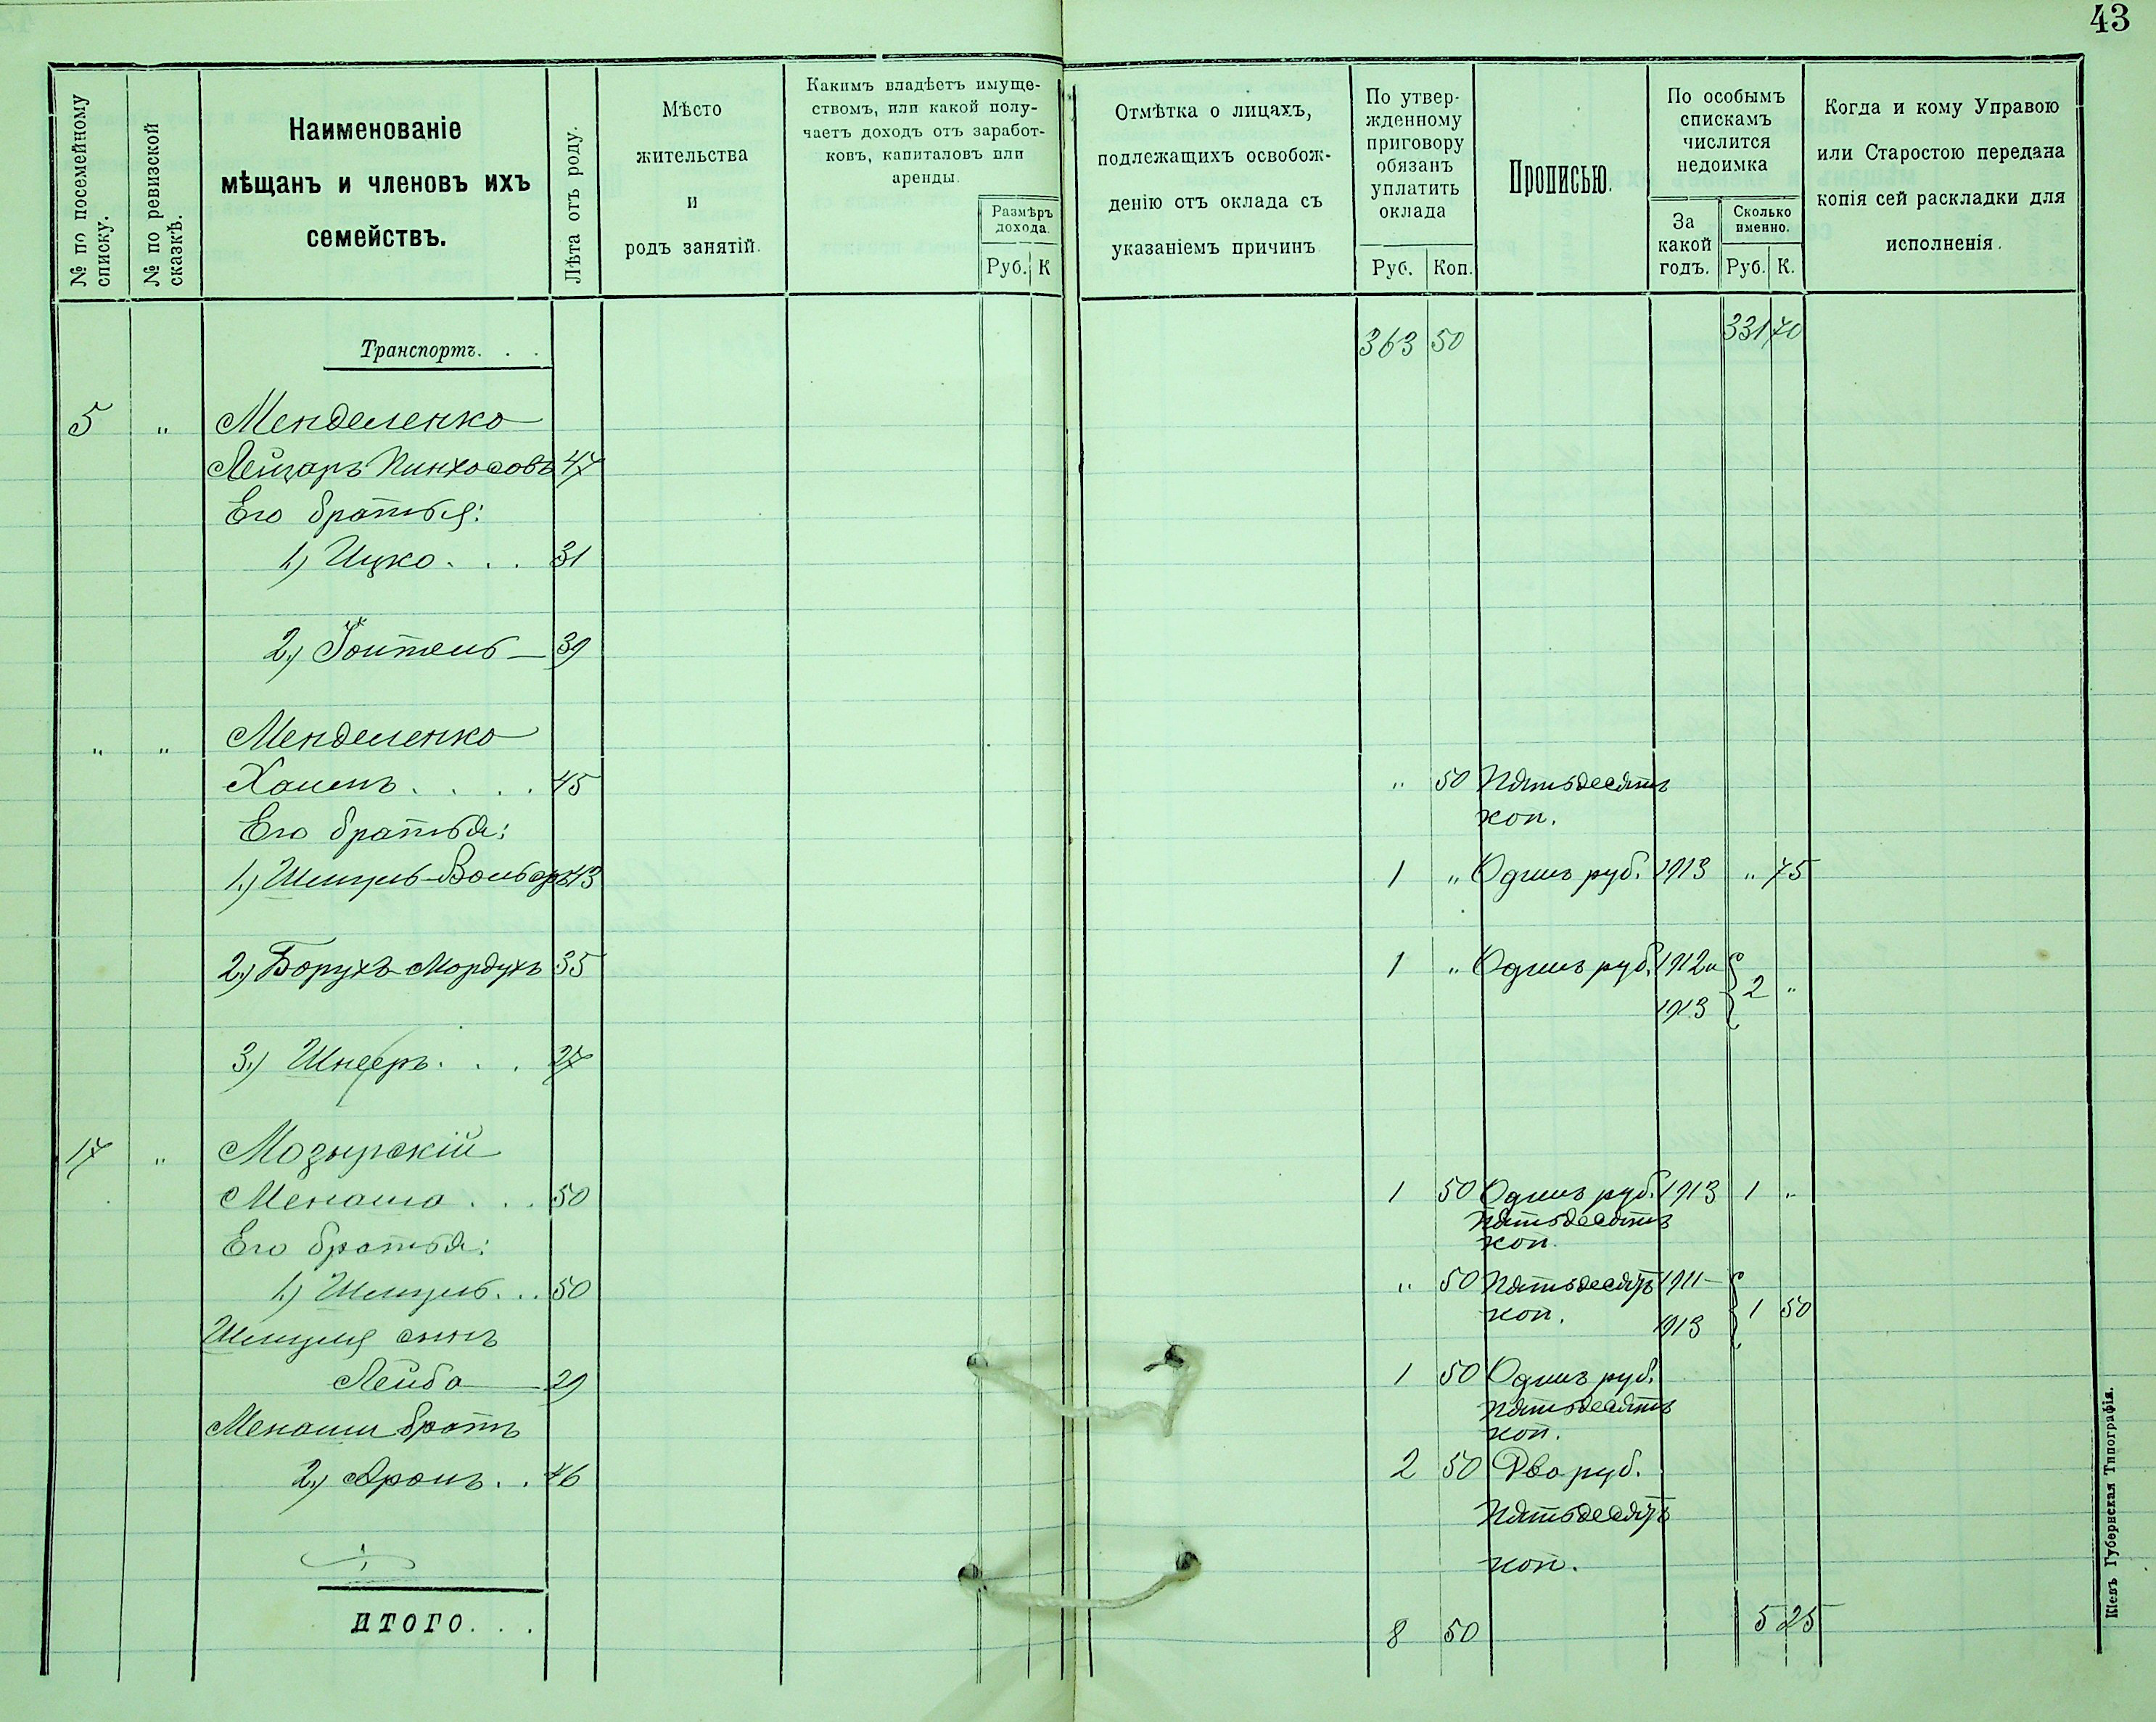 43
№ по посемейному списку.
№ по ревизской сказкѣ.
Наименованіе
мѣщанъ и членовъ ихъ
семействъ.
Лѣта отъ роду.
Мѣсто
жительства
и
родъ занятій.
Какимъ владѣетъ имуще-
ствомъ, или какой полу-
чаетъ доходъ отъ заработ-
ковъ, капиталовъ или
аренды.
Размѣръ
дохода.
Руб. К
Отмѣтка о лицахъ,
подлежащихъ освобож-
денію отъ оклада съ
указаніемъ причинъ
По утвер-
жденному
приговору
обязанъ
уплатить
оклада
Руб. Коп.
Прописью.
По особымъ
спискамъ
числится
недоимка
За
какой
годъ.
Сколько
именно.
Руб. К.
Когда и кому Управою
или Старостою передана
копія сей раскладки для
исполненія.
Транспортъ. . . 363 50 331 70
5 " Менделенко
Лейзаръ Пинхосовъ 47
Его братья:
1.) Ицко. . . 31
2.) Іойтель — 39
" " Менделенко
Хаимъ. . . . 45 " 50 Пятьдесятъ
коп.
Его братья:
1.) Шмуль-Вольфъ 43 1 " Одинъ руб. 1913 " 75
2.) Борухъ-Мордухъ 35 1 " Одинъ руб. 1912 и
1913 2 "
3.) Шнееръ. . . 27
17 " Мозырскій
Менаша . . . 50 1 50 Одинъ руб. 1913 1 "
пятьдесятъ
коп.
Его братья:
1.) Шмуль. . . 50 " 50 Пятьдесятъ 1911-
коп. 1913 1 50
Шмуля сынъ
Лейба — 29 1 50 Одинъ руб.
пятьдесятъ
коп.
Менаши братъ
2.) Аронъ. . . 46 2 50 Два руб.
пятьдесятъ
коп.
ИТОГО. . . 8 50 5 25
Кіевъ Губернская Типографія.